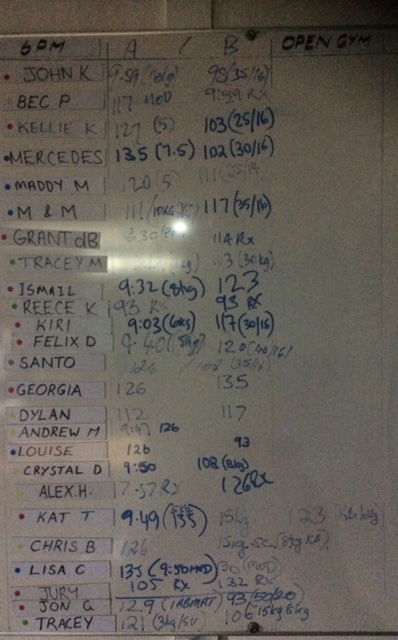 6PM A / B OPEN GYM
JOHN K 9:59 98(35/16)
BEC P 117 MOD 9:59 RX
KELLIE K 127 (5) 103(25/16)
MERCEDES 135 (7.5) 102(30/16)
MADDY M 120(5) 111
M & M 111 117(35/16)
GRANT dB 114 RX
TRACEY M (30kg)
ISMAIL 9:32 (8kg) 123
REECE K 93 RX 93 RX
KIRI 9:03(6kg) 117(30/16)
FELIX D 9:40 (8kg) 120(40/16)
SANTO 126 / 108 (35/16)
GEORGIA 126 135
DYLAN 112 117
ANDREW M 9:47 126
LOUISE 126 93
CRYSTAL D 9:50 108(8kg)
ALEX.H. 7:57 RX 126RX
KAT T 9:49 (135) 15kg 123
CHRIS B 126 15kg
LISA C 135 (9:50MOD) 30 (MOD)
JURY 105 RX 132 RX
JON G 129 (1ABMAT) 93(50/20)
TRACEY 121 (3kg/SU) 106